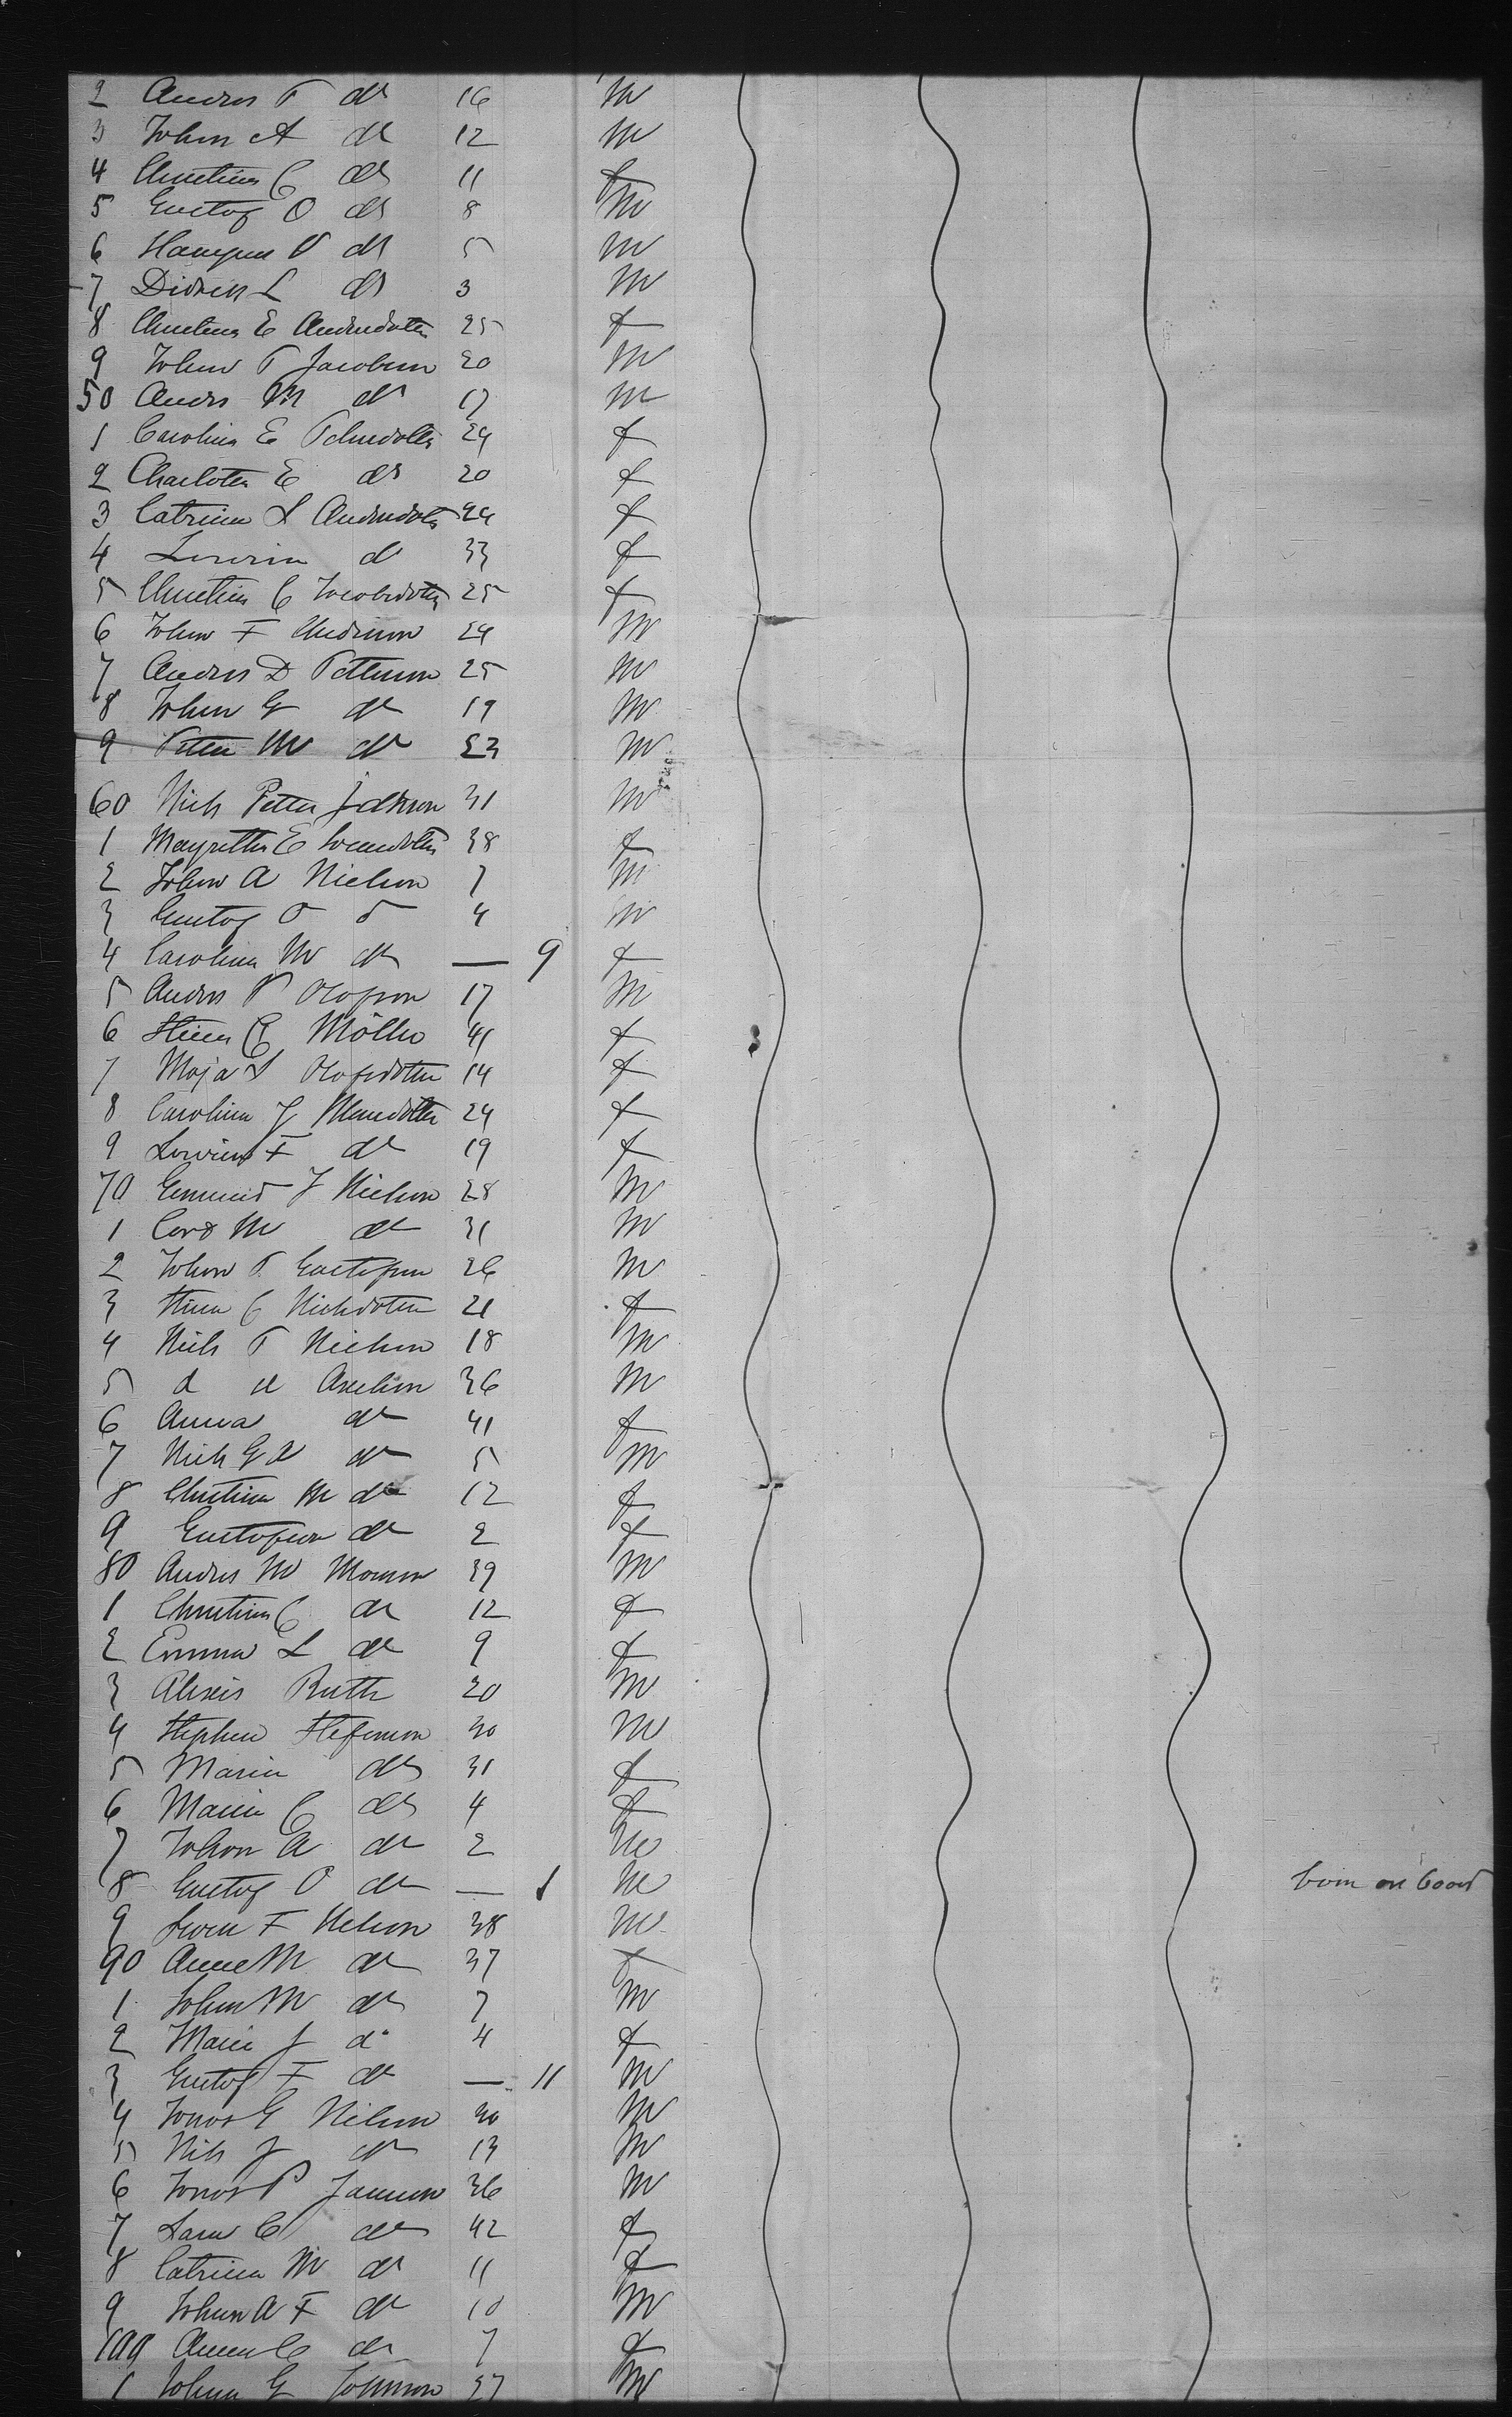 2 Andres P do 16 m
3 Johan A do 12 m
4 Christina C do 11 f
5 Gustof O do 8 m
6 V do 5 m
7 L do 3 m
8 Christina E Andersdotter 25 f
9 Johan P Jacobson 20 m
50 Andrs M do 17 m
1 Carolina E 24 f
2 Charlotta E do 20 f
3 Catrina L Andersdotter 24 f
4 Lovisa do 33 f
5 Christina C Jacobsdotter 25 f
6 Johan F Anderson 24 m
7 Andrs D Petterson 25 m
8 Johan G do 19 m
9 Petter M do 23 m
60 Nils Petter 31 m
1 Magretta E Svensdotter 38 f
2 Johan A Nielson 7 m
3 Gustof O d 4 m
4 Carolina M do — 9 f
5 Andrs P Olofson 17 m
6 Stina C Möller 41 f
7 Maja S Olofsdotter 14 f
8 Carolina J Monsdotter 24 f
9 Lovisa F do 19 f
70 J Nielson 28 m
1 M do 31 m
2 Johan P Gustafson 26 m
3 Stina C Nielsdotter 21 f
4 Niels P Nielson 18 m
5 d Axelson 36 m
6 Anna do 41 f
7 Niels G A do 5 m
8 Christina M do 12 f
9 do 2 f
80 Andrs M Monson 39 m
1 Christina C do 12 f
2 Emma L do 9 f
3 Alexis Ruth 20 m
4 Stephen Stefenson 30 m
5 Maria do 31 f
6 Maria C do 4 f
7 Johan A do 2 m
8 Gustof O do — 1 m born on board
9 Sven F Nelson 38 m
90 Anne M do 37 f
1 Johan M do 7 m
2 Maria J do 4 f
3 Gustof F do — 11 m
4 Jonas G Nilson 30 m
5 Nils J do 13 m
6 Jonas P Janson 36 m
7 Sara C do 42 f
8 Catrina M do 11 f
9 Johan A F do 10 m
100 Anna C do 7 f
1 Johan G Johnson 27 m